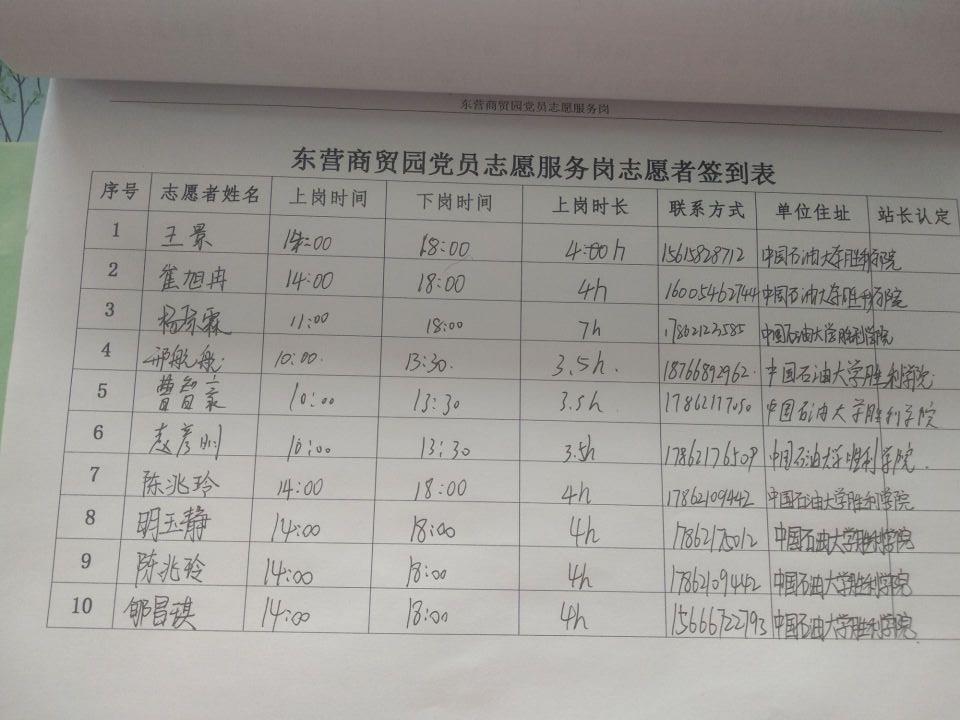 东营商贸园党员志愿服务岗
东营商贸园党员志愿服务岗志愿者签到表
序号 志愿者姓名 上岗时间 下岗时间 上岗时长 联系方式 单位住址 站长认定
1 王景 14:00 18:00 4:00h 15615828712 中国石油大学胜利学院
2 崔旭冉 14:00 18:00 4h 16005462744 中国石油大学胜利学院
3 杨琼霖 11:00 18:00 7h 17862123585 中国石油大学胜利学院
4 邢航航 10:00. 13:30. 3.5h. 18766892962. 中国石油大学胜利学院.
5 曹智豪 10:00 13:30 3.5h. 17862117050 中国石油大学胜利学院
6 赵彦刚 10:00 13:30 3.5h 17862176509 中国石油大学胜利学院.
7 陈兆玲 14:00 18:00 4h 17862109442 中国石油大学胜利学院
8 明玉静 14:00 18:00 4h 17862175012 中国石油大学胜利学院
9 陈兆玲 14:00 18:00 4h 17862109442 中国石油大学胜利学院
10 郇昌琪 14:00 18:00 4h 15666722793 中国石油大学胜利学院